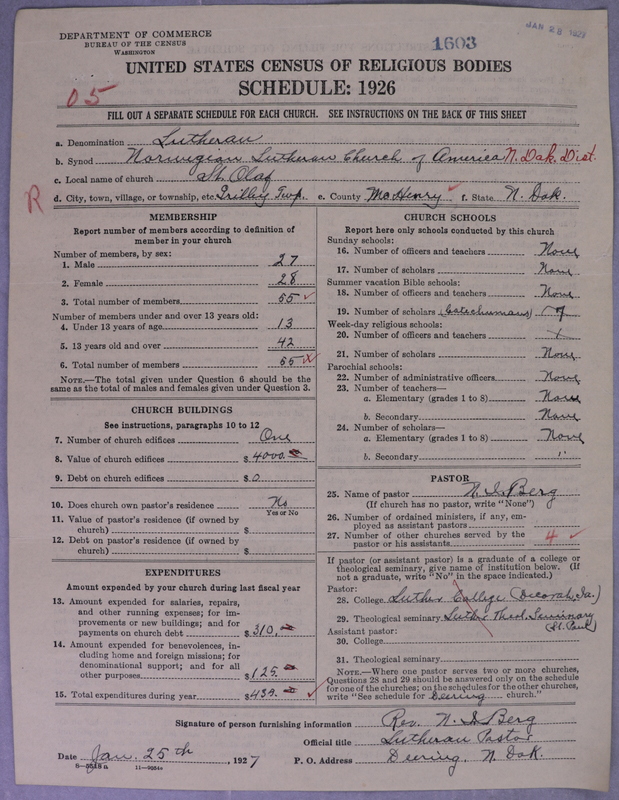 DEPARTMENT OF COMMERCE
BUREAU OF THE CENSUS
WASHINGTON
1603
JAN 28 1927
UNITED STATES CENSUS OF RELIGIOUS BODIES
SCHEDULE: 1926
05
FILL OUT A SEPARATE SCHEDULE FOR EACH CHURCH. SEE INSTRUCTIONS ON THE BACK OF THIS SHEET
a. Denomination Lutheran
b. Synod Norwegian Lutheran Church of America N. Dak. Dist.
c. Local name of church St. Olaf
R
d. City, town, village, or township, etc. Trilby Twp. e. County McHenry f. State N. Dak.
MEMBERSHIP
Report number of members according to definition of
member in your church
Number of members, by sex:
1. Male 27
2. Female 28
3. Total number of members 55
Number of members under and over 13 years old:
4. Under 13 years of age 13
5. 13 years old and over 42
6. Total number of members 55
NOTE.—The total given under Question 6 should be the
same as the total of males and females given under Question 3.
CHURCH BUILDINGS
See instructions, paragraphs 10 to 12
7. Number of church edifices One
8. Value of church edifices $4000.
9. Debt on church edifices $0
10. Does church own pastor's residence No
Yes or No
11. Value of pastor's residence (if owned by
church) $
12. Debt on pastor's residence (if owned by
church) $
EXPENDITURES
Amount expended by your church during last fiscal year
13. Amount expended for salaries, repairs,
and other running expenses; for im-
provements or new buildings; and for
payments on church debt $310.
14. Amount expended for benevolences, in-
cluding home and foreign missions; for
denominational support; and for all
other purposes $125.
15. Total expenditures during year $435.
CHURCH SCHOOLS
Report here only schools conducted by this church
Sunday schools:
16. Number of officers and teachers None
17. Number of scholars None
Summer vacation Bible schools:
18. Number of officers and teachers None
19. Number of scholars (Catechumans) 7
Week-day religious schools:
20. Number of officers and teachers
21. Number of scholars None
Parochial schools:
22. Number of administrative officers None
23. Number of teachers—
a. Elementary (grades 1 to 8) None
b. Secondary None
24. Number of scholars—
a. Elementary (grades 1 to 8) None
b. Secondary "
PASTOR
25. Name of pastor N. J. Berg
(If church has no pastor, write "None")
26. Number of ordained ministers, if any, em-
ployed as assistant pastors
27. Number of other churches served by the
pastor or his assistants 4
If pastor (or assistant pastor) is a graduate of a college or
theological seminary, give name of institution below. (If
not a graduate, write "No" in the space indicated.)
Pastor:
28. College Luther College (Decorah, Ia.)
29. Theological seminary Luther Theol. Seminary
(St. Paul)
Assistant pastor:
30. College
31. Theological seminary
NOTE.—Where one pastor serves two or more churches,
Questions 28 and 29 should be answered only on the schedule
for one of the churches; on the schedules for the other churches,
write "See schedule for Deering church."
Signature of person furnishing information Rev. N. J. Berg
Official title Lutheran Pastor
Date Jan. 25th, 1927 P. O. Address Deering, N. Dak.